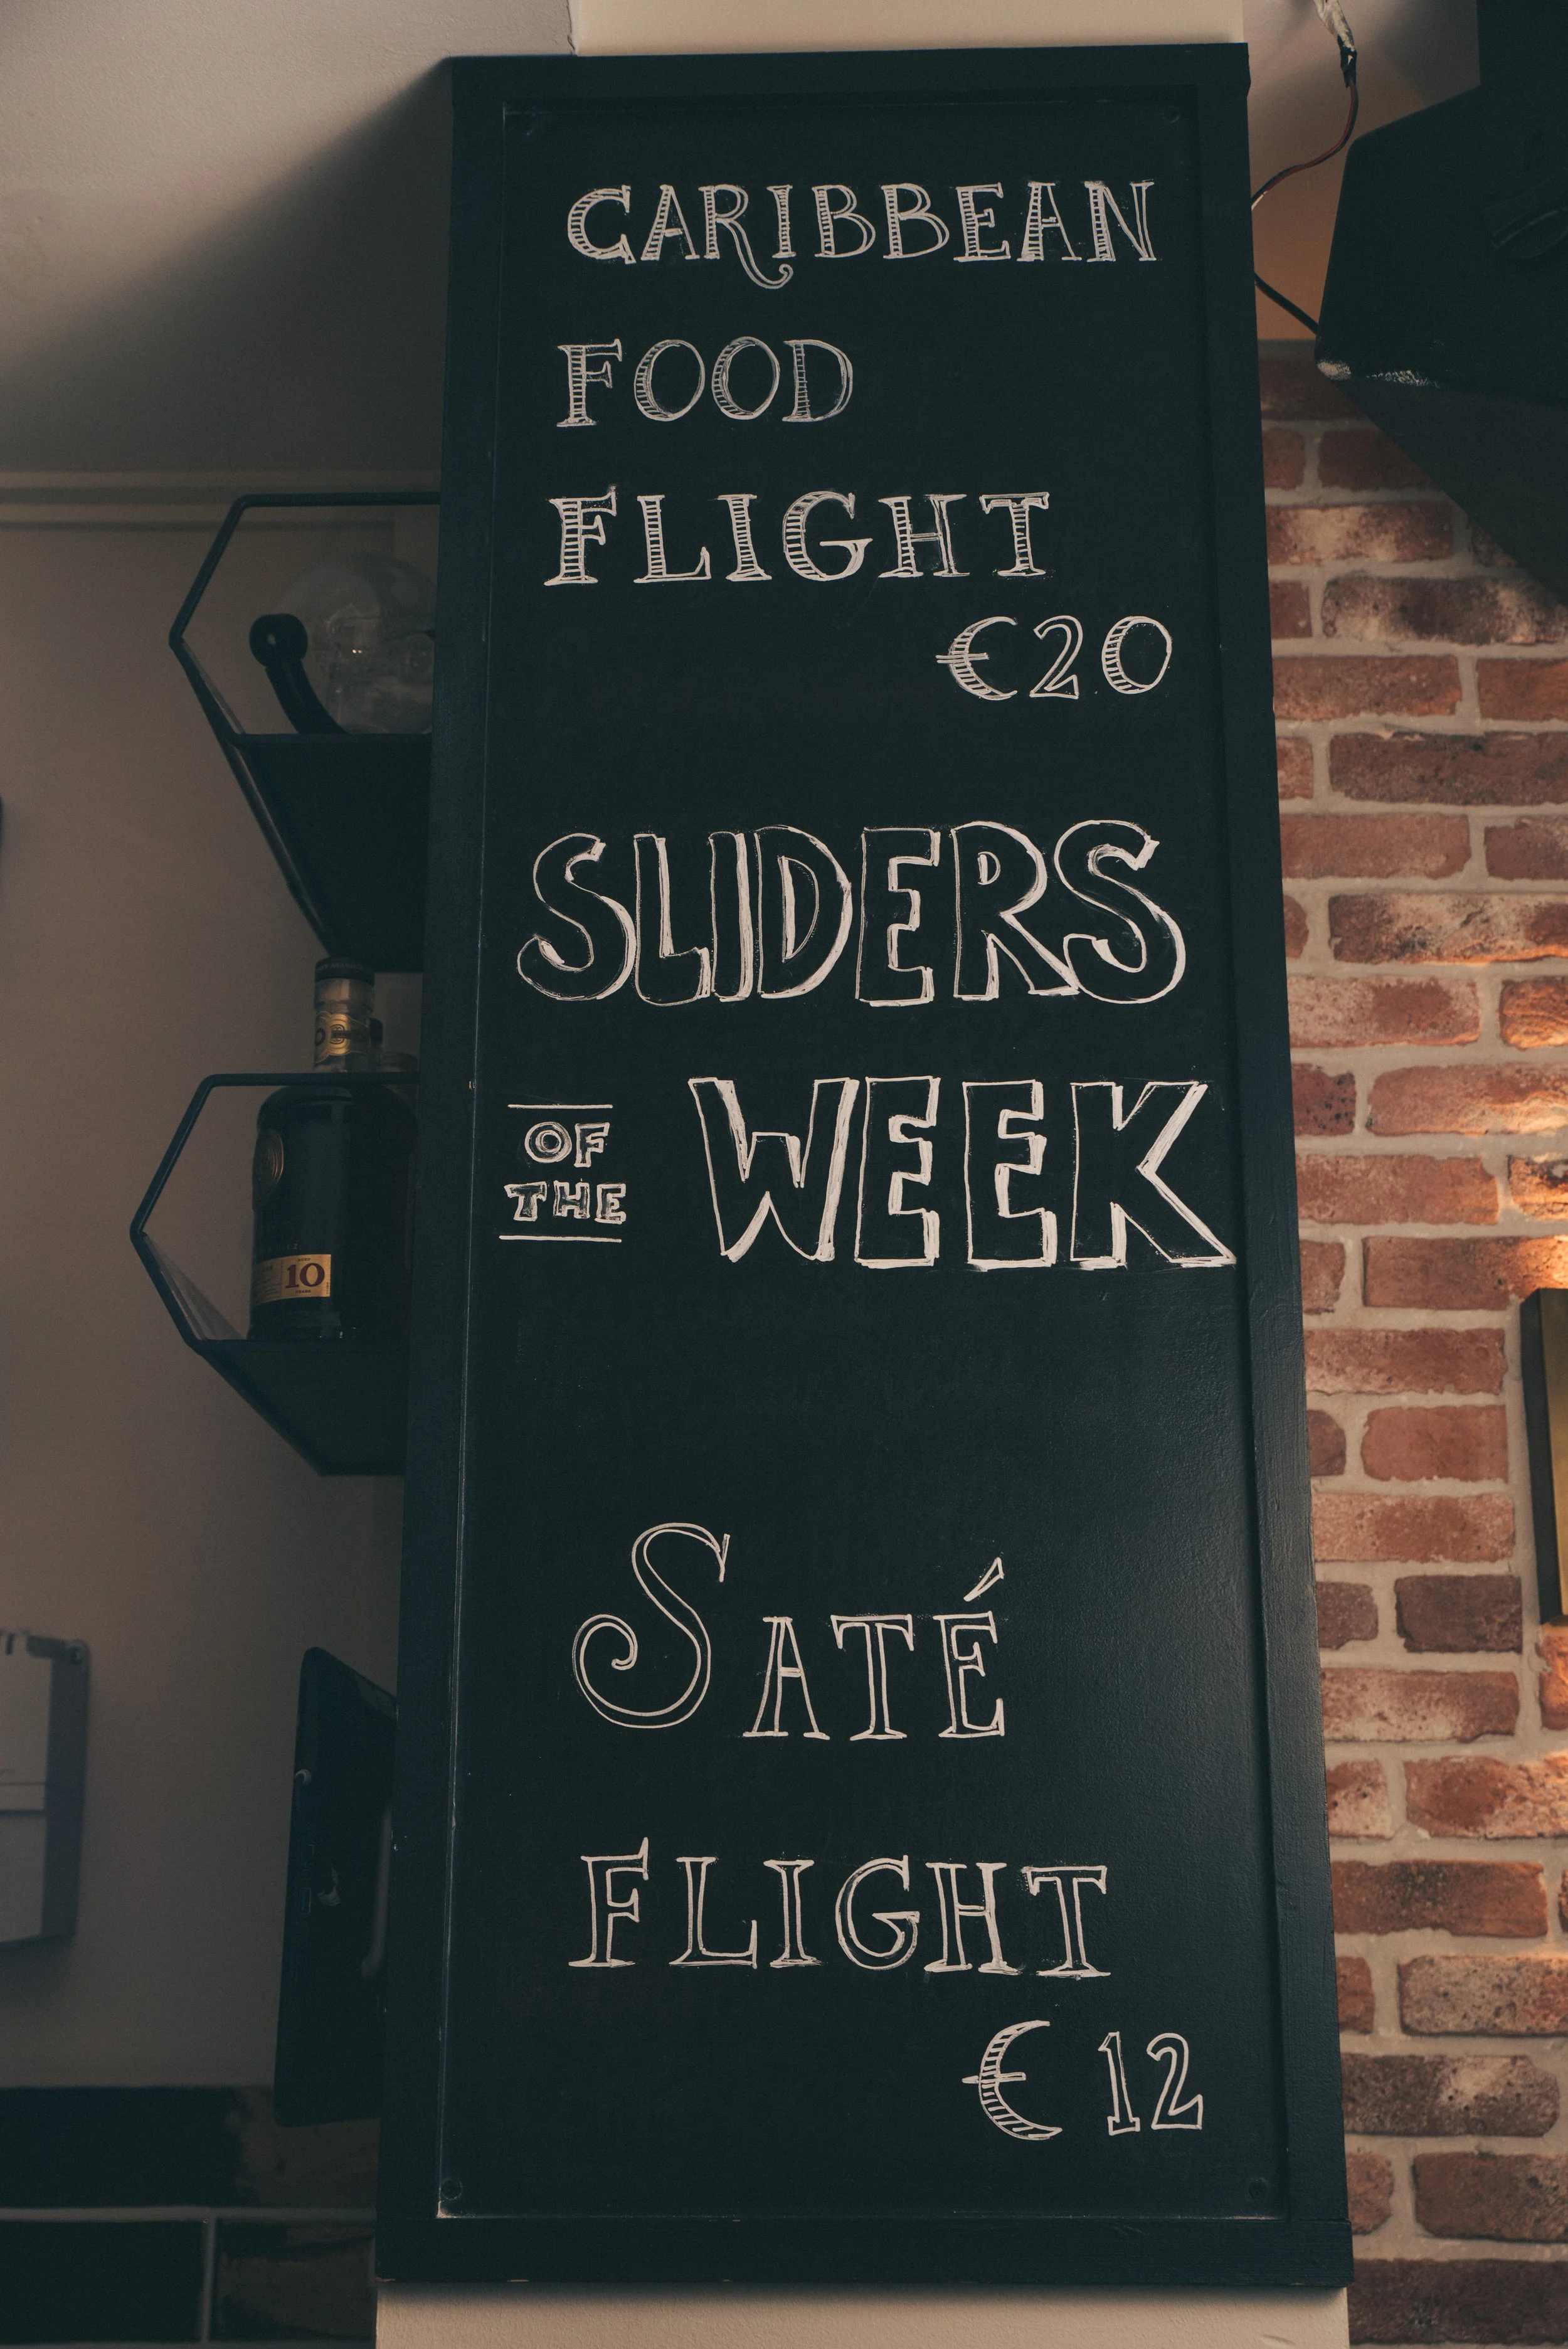 CARIBBEAN
FOOD
FLIGHT
€20
SLIDERS
OF
THE
WEEK
SATÉ
FLIGHT
€ 12
10